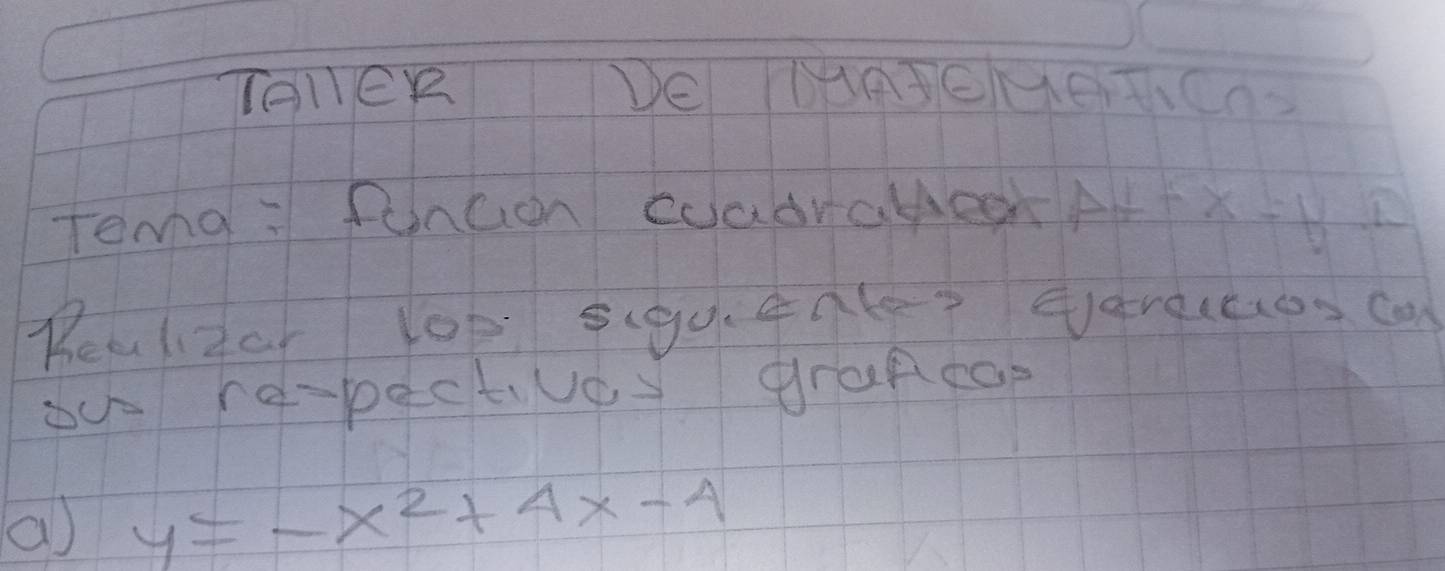 TAllER DE MATEMATICAS
Tema: función cuadratica
Realizar los siguientes ejercicios con
sus respectivas graficas
a) y = -x² + 4x - 4